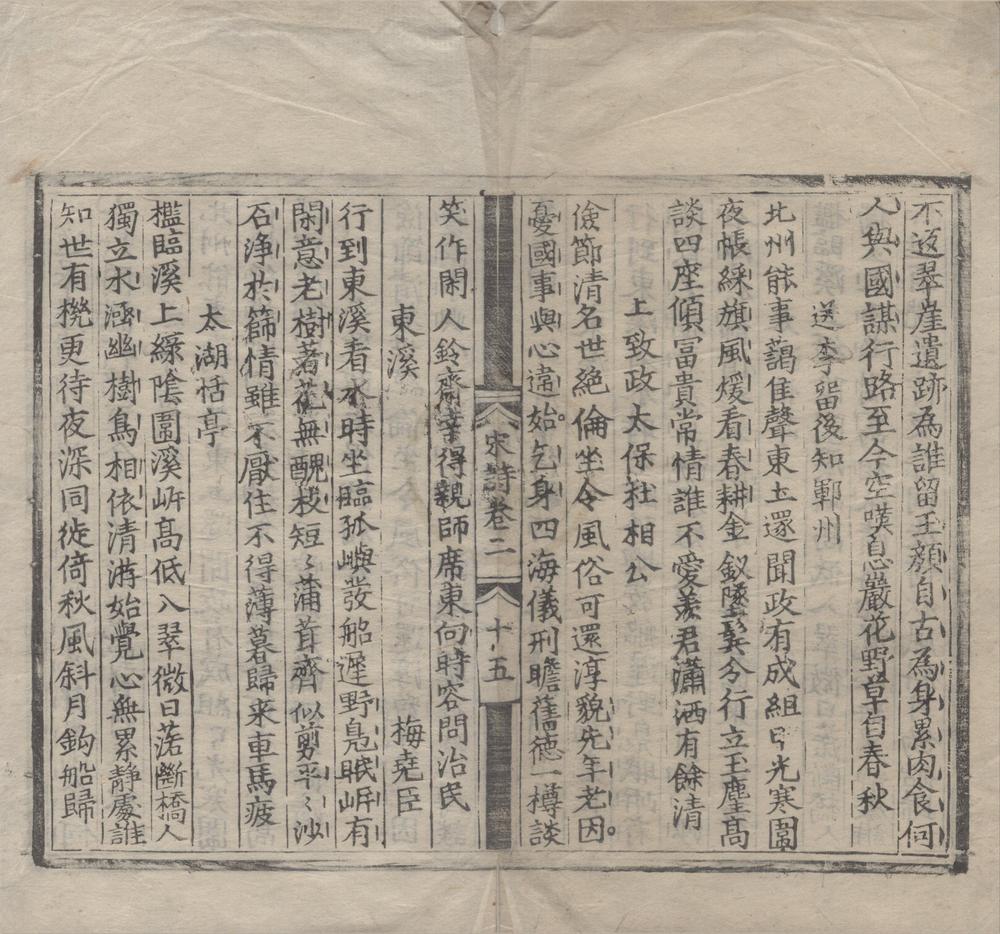 不返翠崖遺跡為誰留玉顏自古為身累肉食何
人與國謀行路至今空嘆息巖花野草自春秋
送李留後知鄆州
北州能事藹隹聲東土還聞政有成組甲光寒圍
夜帳綵旗風煖看春耕金釵墜鬂分行立玉塵高
談四座傾冨貴常情誰不愛羨君瀟洒有餘清
上致政太保杜相公
儉節清名世絶倫坐令風俗可還淳貌先年老因
憂國事與心違始乞身四海儀刑瞻舊德一樽談
宋詩卷二
十五
笑作閑人鈴齋幸得親師席東向時容問治民
東溪 梅堯臣
行到東溪看水時坐臨孤嶼發船遲野鳬眠岍有
閑意老樹著花無醜枝短〻蒲茸齊似剪平〻沙
石淨於篩情雖不厭住不得薄暮歸来車馬疲
太湖恬亭
檻臨溪上綠陰圍溪岍高低入翠微日落斷橋人
獨立水涵幽樹鳥相依清游始覺心無累靜處誰
知世有機更待夜深同徙倚秋風斜月釣船歸